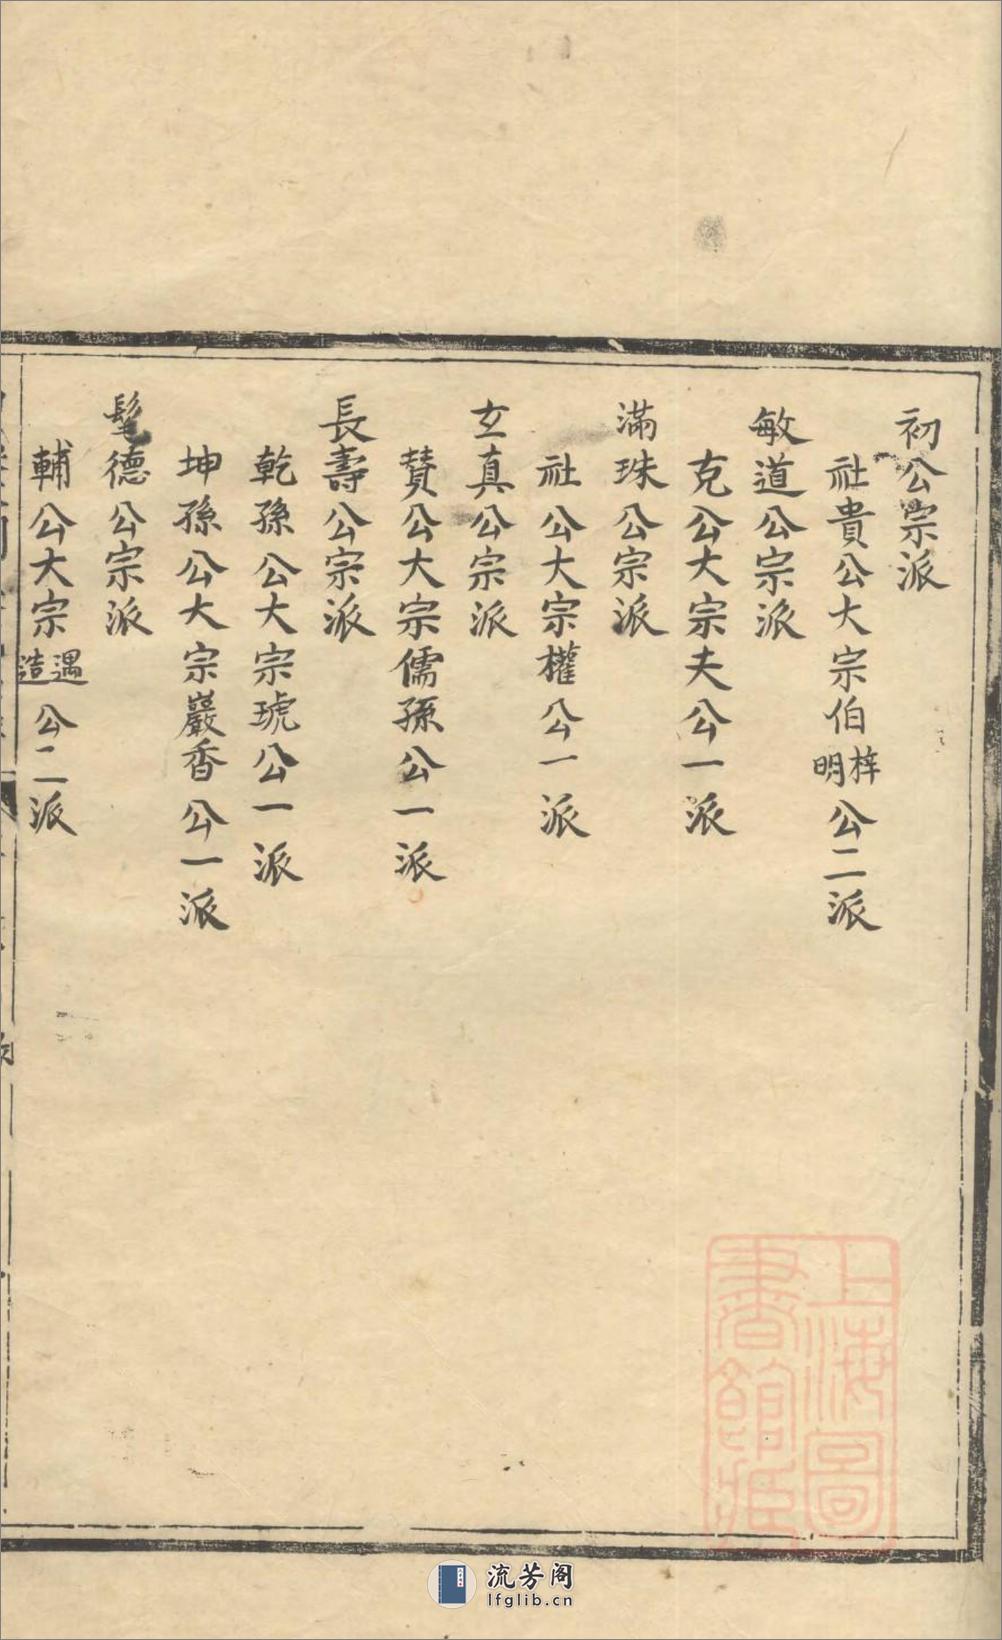 初公宗派
社貴公大宗伯梓明公二派
敏道公宗派
克公大宗夫公一派
滿珠公宗派
社公大宗權公一派
玄真公宗派
贊公大宗儒孫公一派
長壽公宗派
乾孫公大宗琥公一派
坤孫公大宗巖香公一派
髦德公宗派
輔公大宗遇造公二派
上海圖
書館藏
流芳阁
lfglib.cn